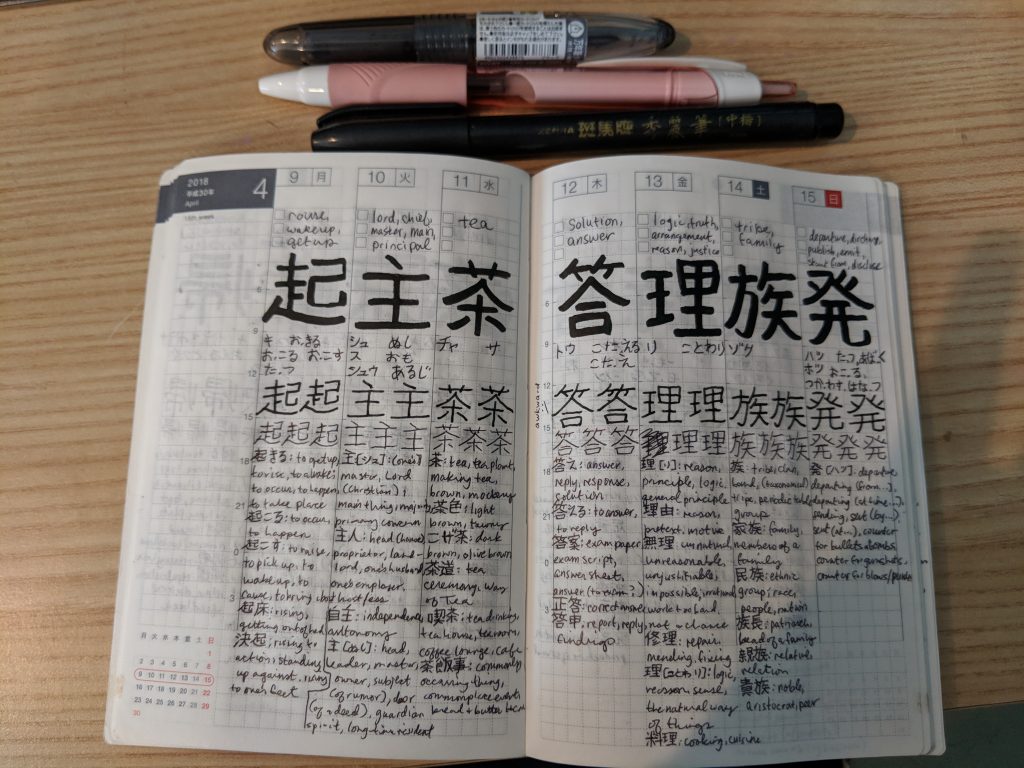 斑馬牌 秀麗筆 [中楷]
2018
平成30年
April
4
9 月
10 火
11 水
12 木
13 金
14 土
15 日
rouse,
wakeup,
getup
lord, chief,
master, main,
principal
tea
Solution,
answer
logic, truth,
arrangement,
reason, justice
tribe,
family
departure, discharge,
publish, emit,
start from, disclose
起 主 茶 答 理 族 発
キ お.きる
お.こる お.こす
た.つ
シュ ぬし
ス おも
シュウ あるじ
チャ サ
トウ こた.える
こた.え
リ ことわり
ゾク
ハツ た.つ あば.く
ホツ おこ.る
つか.わす はな.つ
起起 主主 茶茶 答答 理理 族族 発発
起起起 主主主 茶茶茶 答答答 理理 族族族 発発発
起きる: to get up,
to rise, to awake;
to occur, to happen,
to take place
起こる: to occur,
to happen
起こす: to raise,
to pick up, to
wake up, to
起床: rising,
getting out of bed
決起: rising to
action; standing
up against, rising
to one's feet
主[シュ]: (one's)
master, Lord
(Christian);
main thing, major,
primary concern
主人: head (house)
proprietor, land-
lord, one's husband,
one's employer,
host
自主: independence,
autonomy
主[ぬし]: head,
leader, master,
owner, subject
(of rumor), doer
(of a deed), guardian
spirit, long time resident
茶: tea, tea plant,
making tea,
brown, mockery
茶色: light
brown, tawny
こげ茶: dark
brown, olive brown
茶道: tea
ceremony, way
of Tea
喫茶: tea drinking,
tea house, tea room,
coffee lounge, cafe
茶飯事: commonly
occuring thing,
commonplace event,
bread + butter item
答え: answer,
reply, response,
solution
答える: to answer,
to reply
答案: exam paper
exam script,
answer sheet,
answer (to exam?)
正答: correct answer
答申: report, reply,
findings
理[リ]: reason,
principle, logic,
general principle
理由: reason,
pretext, motive
無理: unnatural,
unreasonable,
unjustifiable;
impossible;
not a chance
修理: repair,
mending, fixing
理[ことわり]: logic,
reason, sense,
the natural way
of things
料理: cooking, cuisine
族: tribe, clan,
band, (taxonomical)
tribe, periodic table
group
家族: family,
members of a
family
民族: ethnic
group, race,
people, nation
族長: patriarch,
head of a family
親族: relative,
relation
貴族: noble,
aristocrat, peer
発[ハツ]: departure
departing (from...),
departing (at time...),
sending, sent (by...),
sent (at...), counter
for bullets + bombs
counter for gunshots,
counter for blows/punches
月 火 水 木 金 土 日
1
2 3 4 5 6 7 8
9 10 11 12 13 14 15
16 17 18 19 20 21 22
23 24 25 26 27 28 29
30